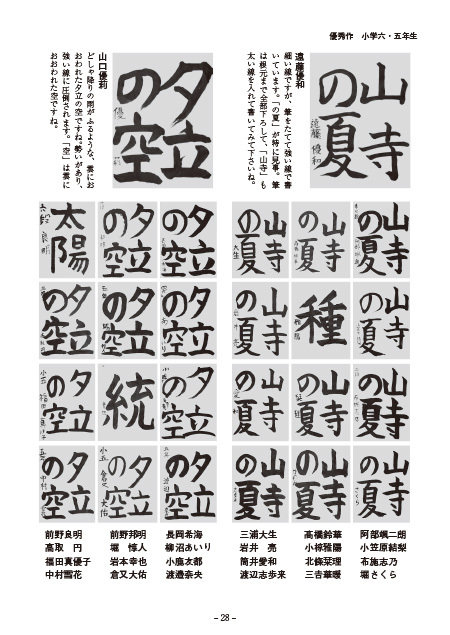 優秀作　小学六・五年生
山寺
の夏
遠藤優和
遠藤優和
細い線ですが、筆をたてて強い線で書
いています。「の夏」が特に見事。筆
は根元まで全部下ろして、「山寺」も
太い線を入れて書いてみて下さいね。
夕立
の空
山口優莉
どしゃ降りの雨がふるような、雲にお
おわれた夕立の空ですね。勢いがあり、
強い線に圧倒されます。「空」は雲に
おおわれた空ですね。
山寺
の夏
山寺
の夏
山寺
の夏
山寺
の夏
種
山寺
の夏
山寺
の夏
山寺
の夏
山寺
の夏
山寺
の夏
山寺
の夏
山寺
の夏
夕立
の空
夕立
の空
太陽
夕立
の空
夕立
の空
夕立
の空
夕立
の空
統
夕立
の空
夕立
の空
夕立
の空
夕立
の空
前野良明　前野邦明　長岡希海　三浦大生　高橋鈴華　阿部颯二朗
高取　円　堀　惇人　柳沼あいり　岩井　亮　小椋雅陽　小笠原結梨
福田真優子　岩本幸也　小鹿友都　筒井愛和　北條栞理　布施志乃
中村雪花　倉又大佑　渡邉奈央　渡辺志歩来　三𠮷華暖　堀さくら
- 28 -